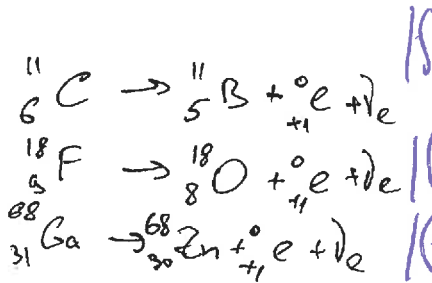 ¹¹₆C → ¹¹₅B + ⁰₊₁e + νₑ
¹⁸₉F → ¹⁸₈O + ⁰₊₁e + νₑ
⁶⁸₃₁Ga → ⁶⁸₃₀Zn + ⁰₊₁e + νₑ